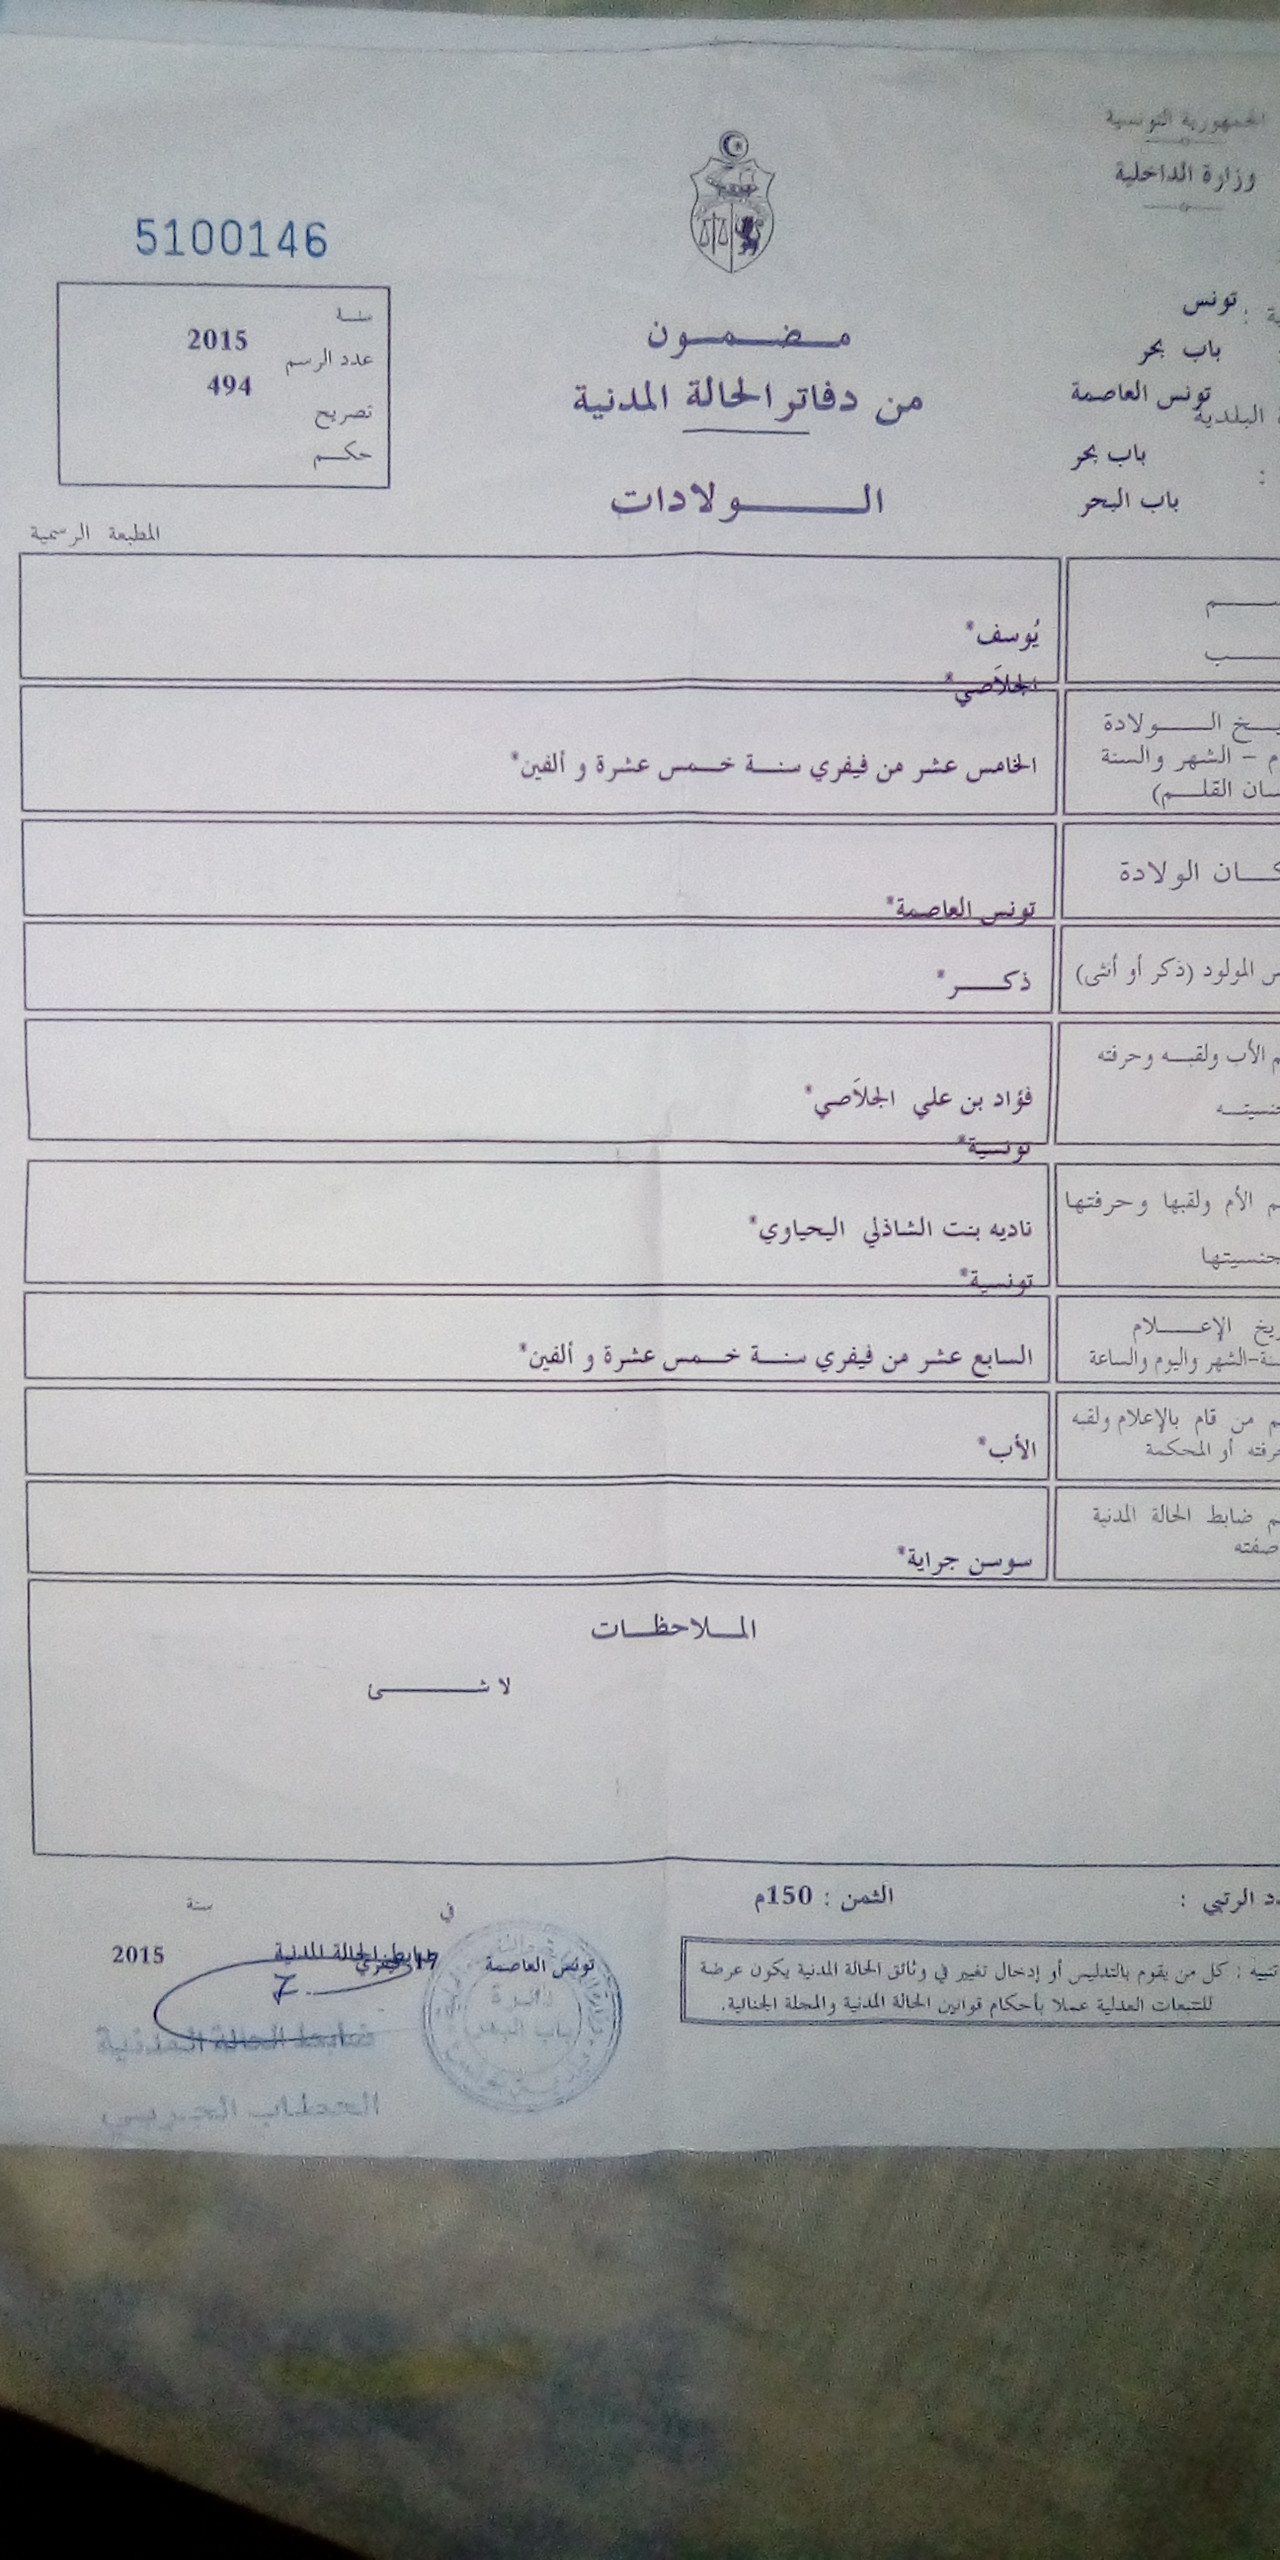 الجمهورية التونسية
وزارة الداخلية
5100146
تونس
باب بحر
تونس العاصمة
البلدية
باب بحر
باب البحر
سنة
2015
عدد الرسم
494
تصريح
حكم
مضمون
من دفاتر الحالة المدنية
الولادات
المطبعة الرسمية
يُوسف*
الجلاَصي*
الولادة
الشهر والسنة
القلم)
الخامس عشر من فيفري سنة خمس عشرة و ألفين*
الولادة
تونس العاصمة*
المولود (ذكر أو أنثى)
ذكر*
الأب ولقبه وحرفته
فؤاد بن علي الجلاَصي*
تونسية*
الأم ولقبها وحرفتها
ناديه بنت الشاذلي اليحياوي*
جنسيتها
تونسية*
الإعلام
-الشهر واليوم والساعة
السابع عشر من فيفري سنة خمس عشرة و ألفين*
من قام بالإعلام ولقبه
أو المحكمة
الأب*
ضابط الحالة المدنية
سوسن جراية*
الملاحظات
لا شئ
الرتبي :
الثمن : 150م
تنبيه : كل من يقوم بالتدليس أو إدخال تغيير في وثائق الحالة المدنية يكون عرضة
للتتبعات العدلية عملا بأحكام قوانين الحالة المدنية والمجلة الجنائية.
في
سنة
تونس العاصمة
17 فيفري
2015
ضابط الحالة المدنية
دائرة
باب البحر
ضابط الحالة المدنية